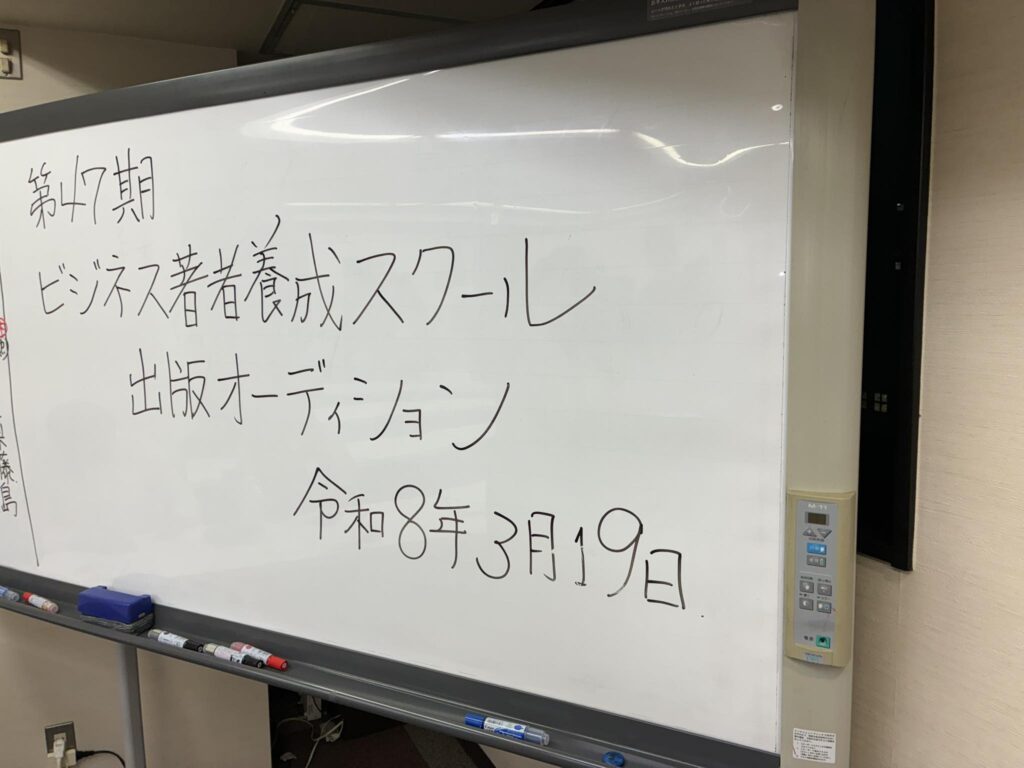 第47期
ビジネス著者養成スクール
出版オーディション
令和8年3月19日
藤島